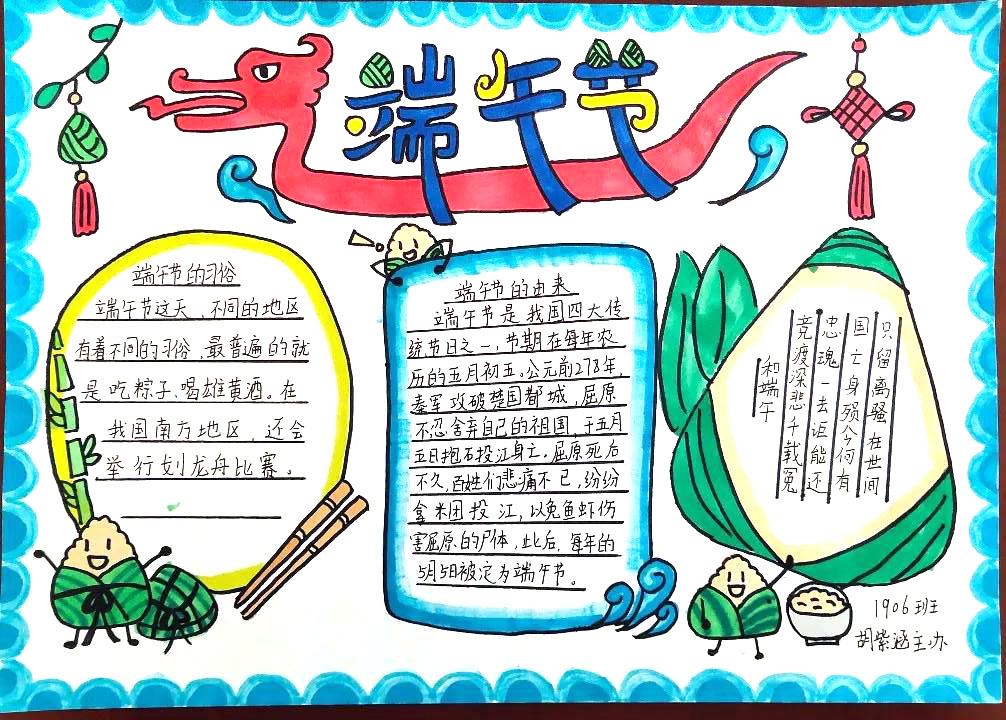 端午节
端午节的习俗
端午节这天,不同的地区
有着不同的习俗,最普遍的就
是吃粽子、喝雄黄酒。在
我国南方地区,还会
举行划龙舟比赛。
端午节的由来
端午节是我国四大传
统节日之一,节期在每年农
历的五月初五。公元前278年,
秦军攻破楚国都城,屈原
不忍舍弃自己的祖国,于五月
五日抱石投江身亡。屈原死后
不久,百姓们悲痛不已,纷纷
拿米团投江,以免鱼虾伤
害屈原的尸体,此后,每年的
5月5日被定为端午节。
和端午
竞渡深悲千载冤
忠魂一去讵能还
国亡身殒今何有
只留离骚在世间
1906班
胡紫涵主办